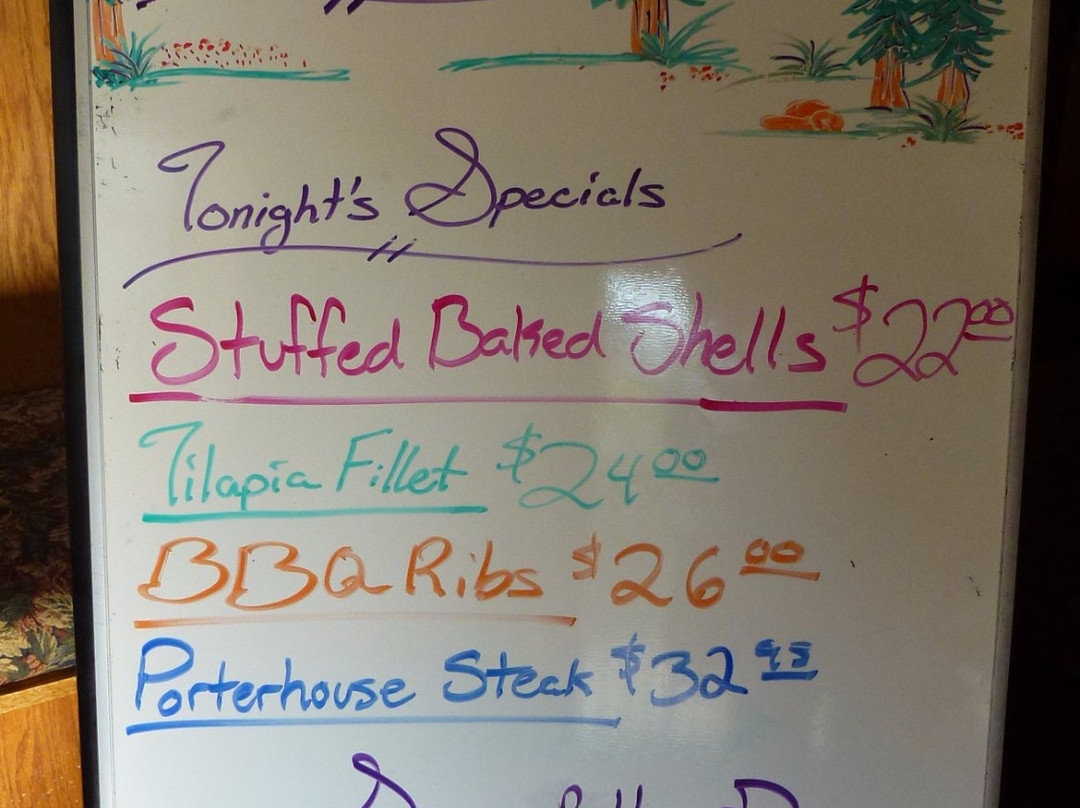 Tonight's Specials
Stuffed Baked Shells $22.00
Tilapia Fillet $24.00
BBQ Ribs $26.00
Porterhouse Steak $32.95